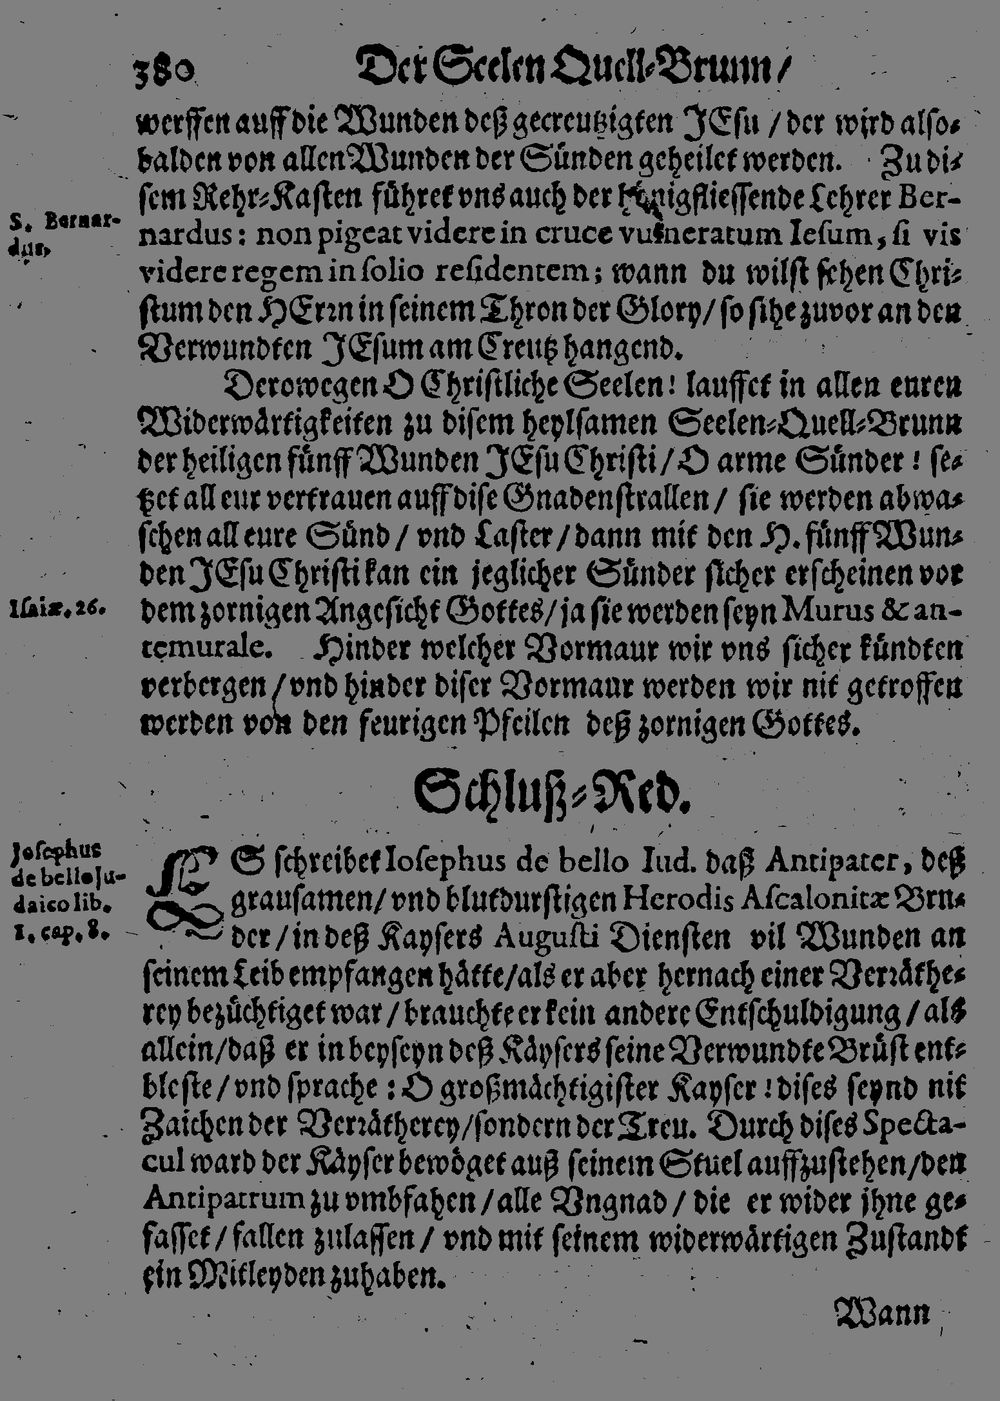 380 Der Seelen Quell-Brunn /
werffen auff die Wunden deß gecreutzigten JEsu / der wird also-
balden von allen Wunden der Sünden geheilet werden. Zu di-
sem Rehr-Kasten führet vns auch der hönigfliessende Lehrer Ber-
S. Bernar-
dus,
nardus: non pigeat videre in cruce vulneratum Iesum, si vis
videre regem in solio residentem; wann du wilst sehen Chri-
stum den HErrn in seinem Thron der Glory / so sihe zuvor an den
Verwundten JEsum am Creutz hangend.
Derowegen O Christliche Seelen! lauffet in allen euren
Widerwärtigkeiten zu disem heylsamen Seelen-Quell-Brunn
der heiligen fünff Wunden JEsu Christi / O arme Sünder! se-
tzet all eur vertrauen auff dise Gnadenstrallen / sie werden abwa-
schen all eure Sünd / vnd Laster / dann mit den H. fünff Wun-
den JEsu Christi kan ein jeglicher Sünder sicher erscheinen vor
Isaiæ. 26.
dem zornigen Angesicht Gottes / ja sie werden seyn Murus & an-
temurale. Hinder welcher Vormaur wir vns sicher kündten
verbergen / vnd hinder diser Vormaur werden wir nit getroffen
werden von den feurigen Pfeilen deß zornigen Gottes.
Schluß-Red.
Josephus
de bello Ju-
daico lib.
1. cap. 8.
ES schreibet Iosephus de bello Iud. daß Antipater, deß
grausamen / vnd blutdurstigen Herodis Ascalonitæ Bru-
der / in deß Kaysers Augusti Diensten vil Wunden an
seinem Leib empfangen hätte / als er aber hernach einer Verräthe-
rey bezüchtiget war / brauchte er kein andere Entschuldigung / als
allein / daß er in beyseyn deß Käysers seine Verwundte Brüst ent-
bleste / vnd sprache: O großmächtigister Kayser! dises seynd nit
Zaichen der Verrätherey / sondern der Treu. Durch dises Specta-
cul ward der Käyser bewöget auß seinem Stuel auffzustehen / den
Antipatrum zu vmbfahen / alle Vngnad / die er wider jhne ge-
fasset / fallen zulassen / vnd mit seinem widerwärtigen Zustandt
ein Mitleyden zuhaben.
Wann